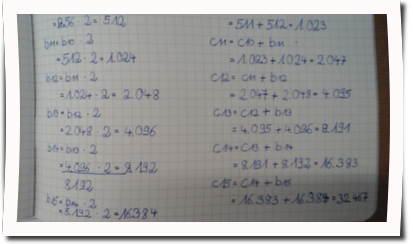 = 256 · 2 = 512
b11 = b10 · 2
= 512 · 2 = 1.024
b12 = b11 · 2
= 1.024 · 2 = 2.048
b13 = b12 · 2
= 2.048 · 2 = 4.096
b14 = b13 · 2
= 4.096 · 2 = 8.192
8192
b15 = b14 · 2
= 8.192 · 2 = 16.384
= 511 + 512 = 1.023
c11 = c10 + b11
= 1.023 + 1.024 = 2.047
c12 = c11 + b12
= 2.047 + 2.048 = 4.095
c13 = c12 + b13
= 4.095 + 4.096 = 8.191
c14 = c13 + b14
= 8.191 + 8.192 = 16.383
c15 = c14 + b15
= 16.383 + 16.384 = 32.467